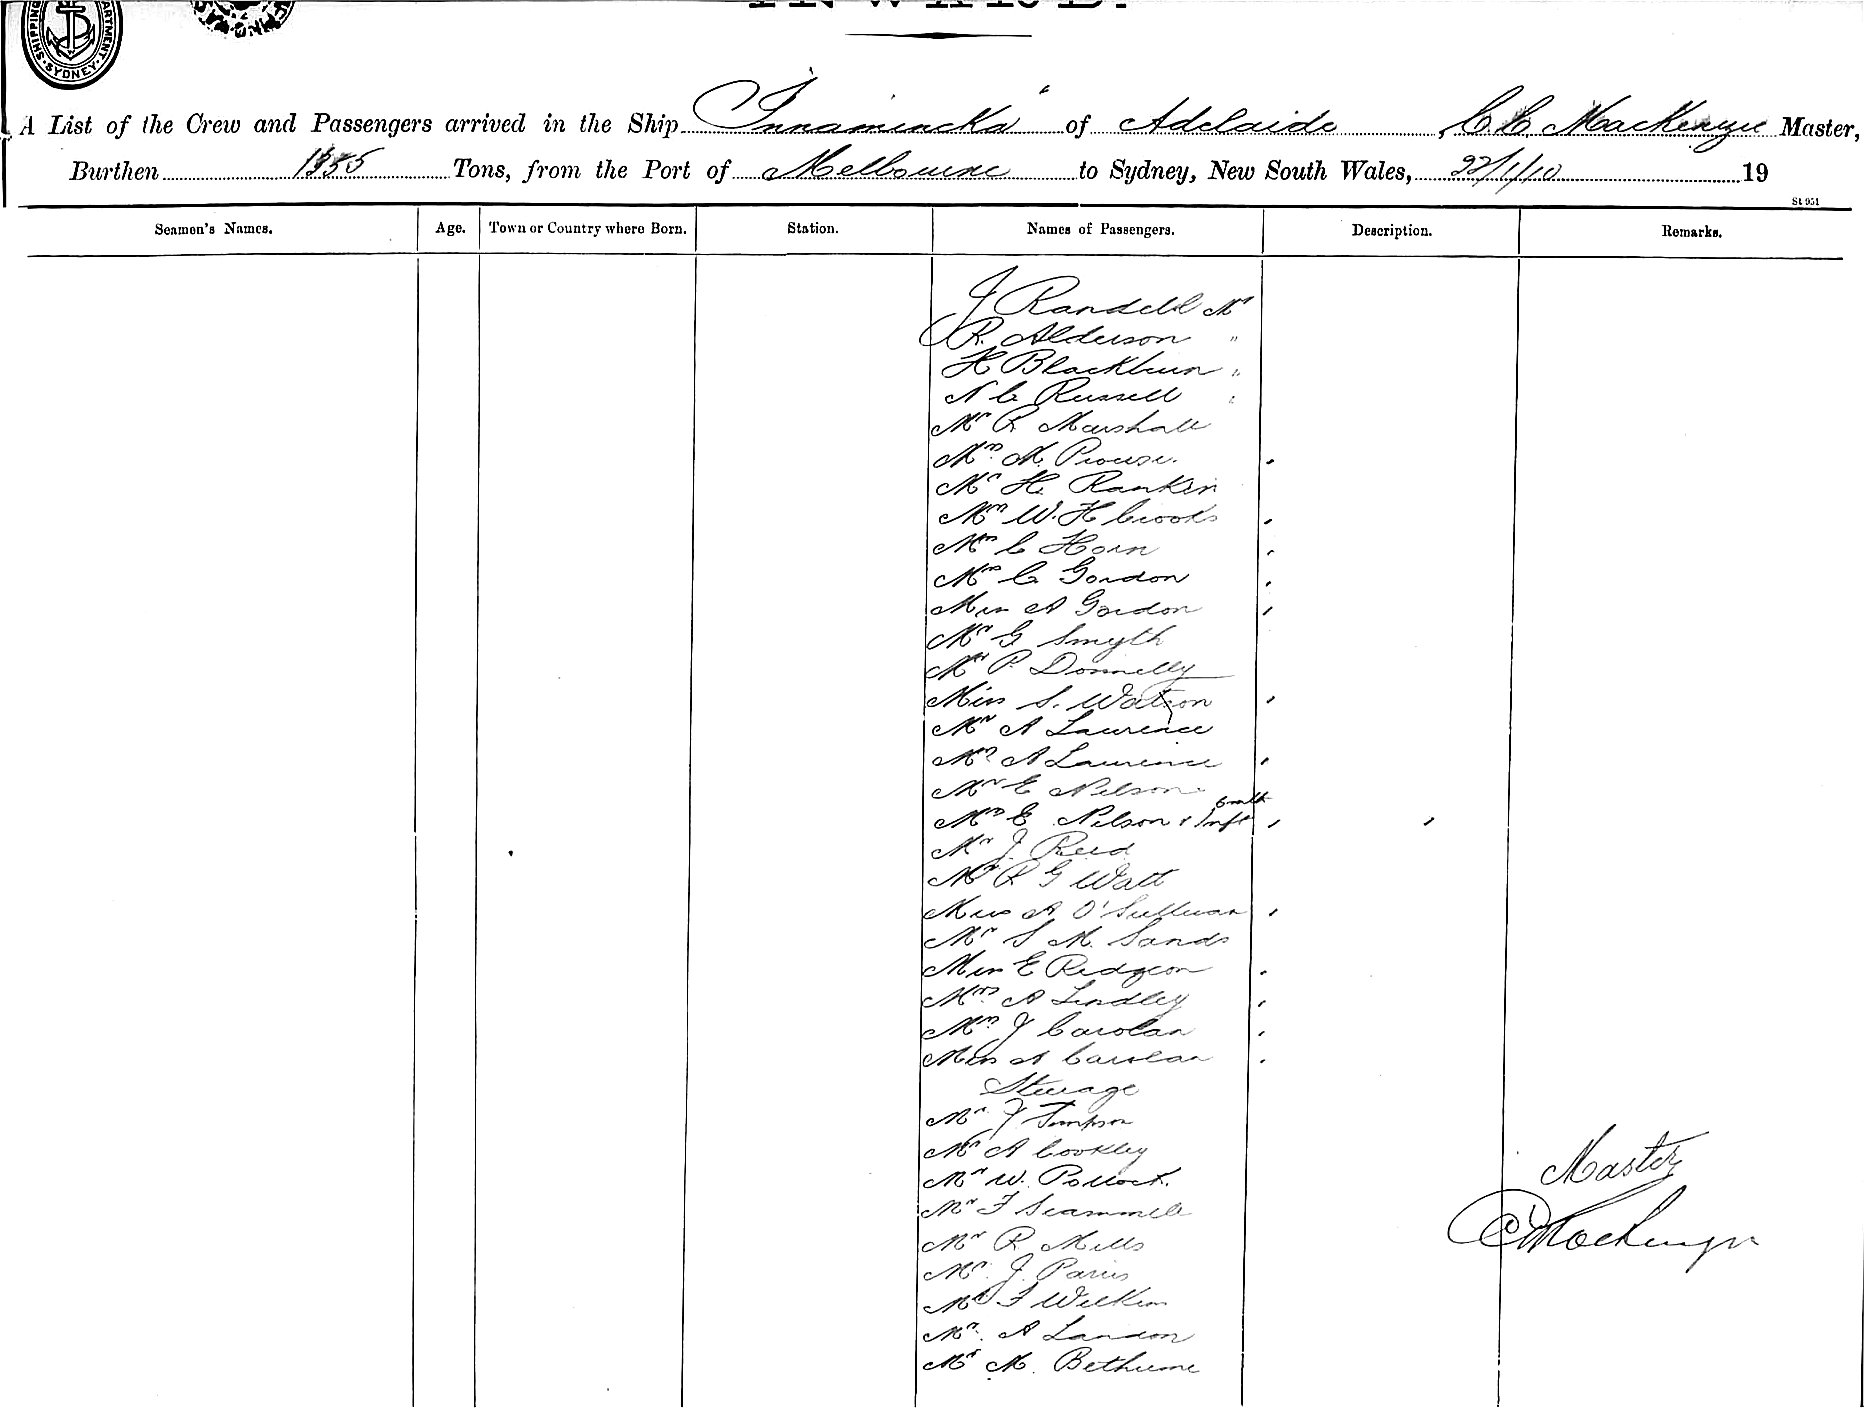 INWARD.
SHIPPING DEPARTMENT · SYDNEY ·
A List of the Crew and Passengers arrived in the Ship "Innamincka" of Adelaide, C C MacKenzie Master,
Burthen 1355 Tons, from the Port of Melbourne to Sydney, New South Wales, 22/1/10 19
St 951
Seamen's Names. Age. Town or Country where Born. Station. Names of Passengers. Description. Remarks.
J Randell Mr
R. Alderson "
H Blackburn "
N C Russell "
Mr R Marshall
Mrs M. Prouse.
Mr H. Rankin
Mrs W. H Crooks
Mrs C Horn
Mrs C Gordon
Miss A Gordon
Mr G Smyth
Mr P. Donnelly
Miss S. Watson
Mr A Laurence
Mrs A Laurence
Mr E Nelson
6 mth
Mrs E Nelson & Inft
Mr J. Reed
Mr R G Watt
Miss A O'Sullivan
Mr S M. Sands
Miss E Ridgeon
Mrs A Lindley
Mrs J Carolan
Miss A Carolan
Steerage
Mr J Simpson
Mr A Cookley
Mr W. Pollock.
Mr F Scammell
Mr R Mills
Mr. J. Paris
Mr F Wilkins
Mr. A Landon
Mr M. Bethune
Master
C C Mackenzie